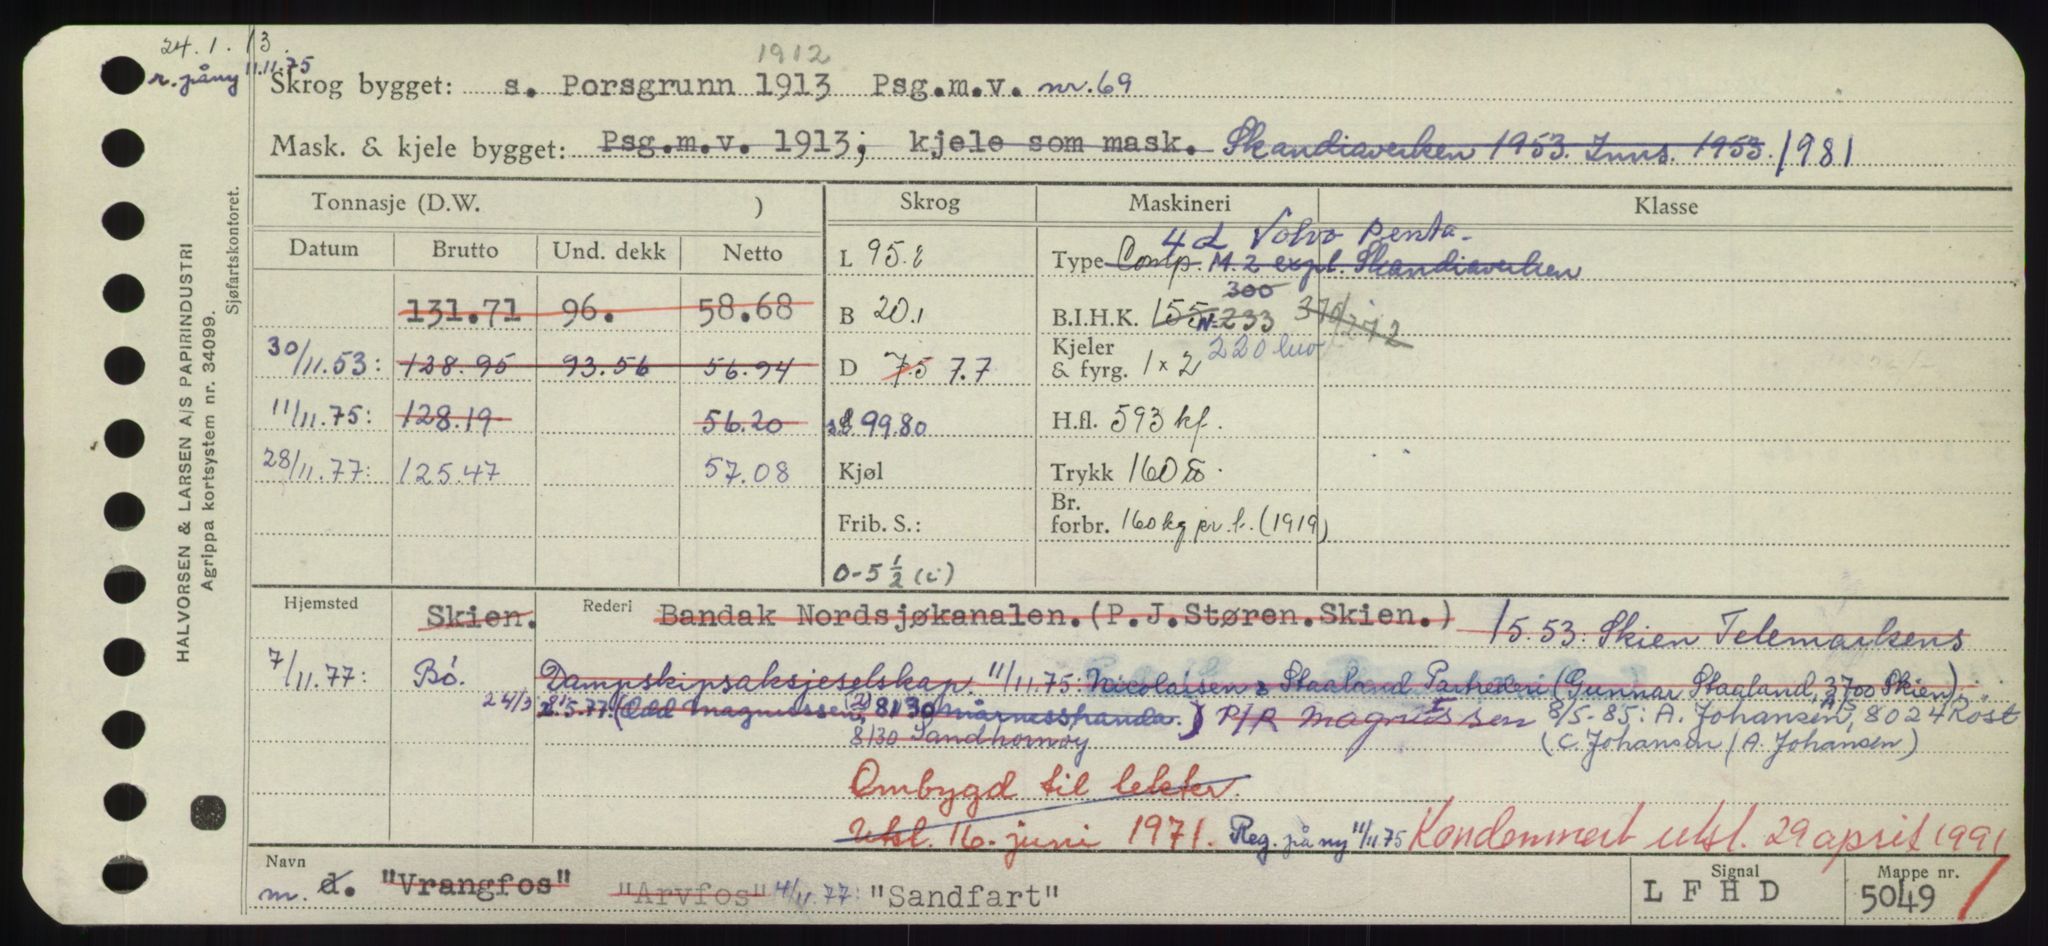 24.1.13.
r. påny 11.11.75
1912
Skrog bygget: s. Porsgrunn 1913 Psg.m.v. nr. 69
Mask. & kjele bygget: Psg.m.v. 1913; kjele som mask. Skandiaverken 1953. Inns. 1953. 1981
Tonnasje (D.W. ) Skrog Maskineri Klasse
Datum Brutto Und. dekk Netto
4 d Volvo Penta
L 95.2 Type Comp. M. 2 expl. Skandiaverken
131.71 96. 58.68
300
B 20.1 B.I.H.K. 155 N-233 370/272
220 luv
30/11.53: 128.95 93.56 56.94
D 7.5 7.7 Kjeler & fyrg. 1 x 2
11/11.75: 128.19 56.20
99.80 H.fl. 593 kf.
28/11.77: 125.47 57.08
Kjøl Trykk 160 ℔.
Frib. S.: Br. forbr. 160 kg pr. t. (1919)
0-5 1/2 (i)
Hjemsted Skien. Rederi Bandak Nordsjøkanalen. (P.J.Støren.Skien.) 15.53: Skien Telemarkens
7/11.77: Bö. Dampskipsaksjeselskap. 11/11.75: Nicolaisen & Staaland Partrederi (Gunnar Staaland, 3700 Skien).
24/3 81 5.77: (Odd Magnussen, 8130 Mårnesstranda.) P/R Magnussen 8/5-85: A. Johansen A/S, 8024 Röst
8130 Sandhornöy (C. Johansen / A. Johansen)
Ombygd til lekter.
Utsl. 16. juni 1971. Reg. på ny 11/11.75 Kondemnert utsl. 29 april 1991
Navn Signal Mappe nr.
m. d. "Vrangfos" "Arvfos" 4/11.77: "Sandfart" L F H D 5049
HALVORSEN & LARSEN A/S PAPIRINDUSTRI
Agrippa kortsystem nr. 34099.
Sjøfartskontoret.